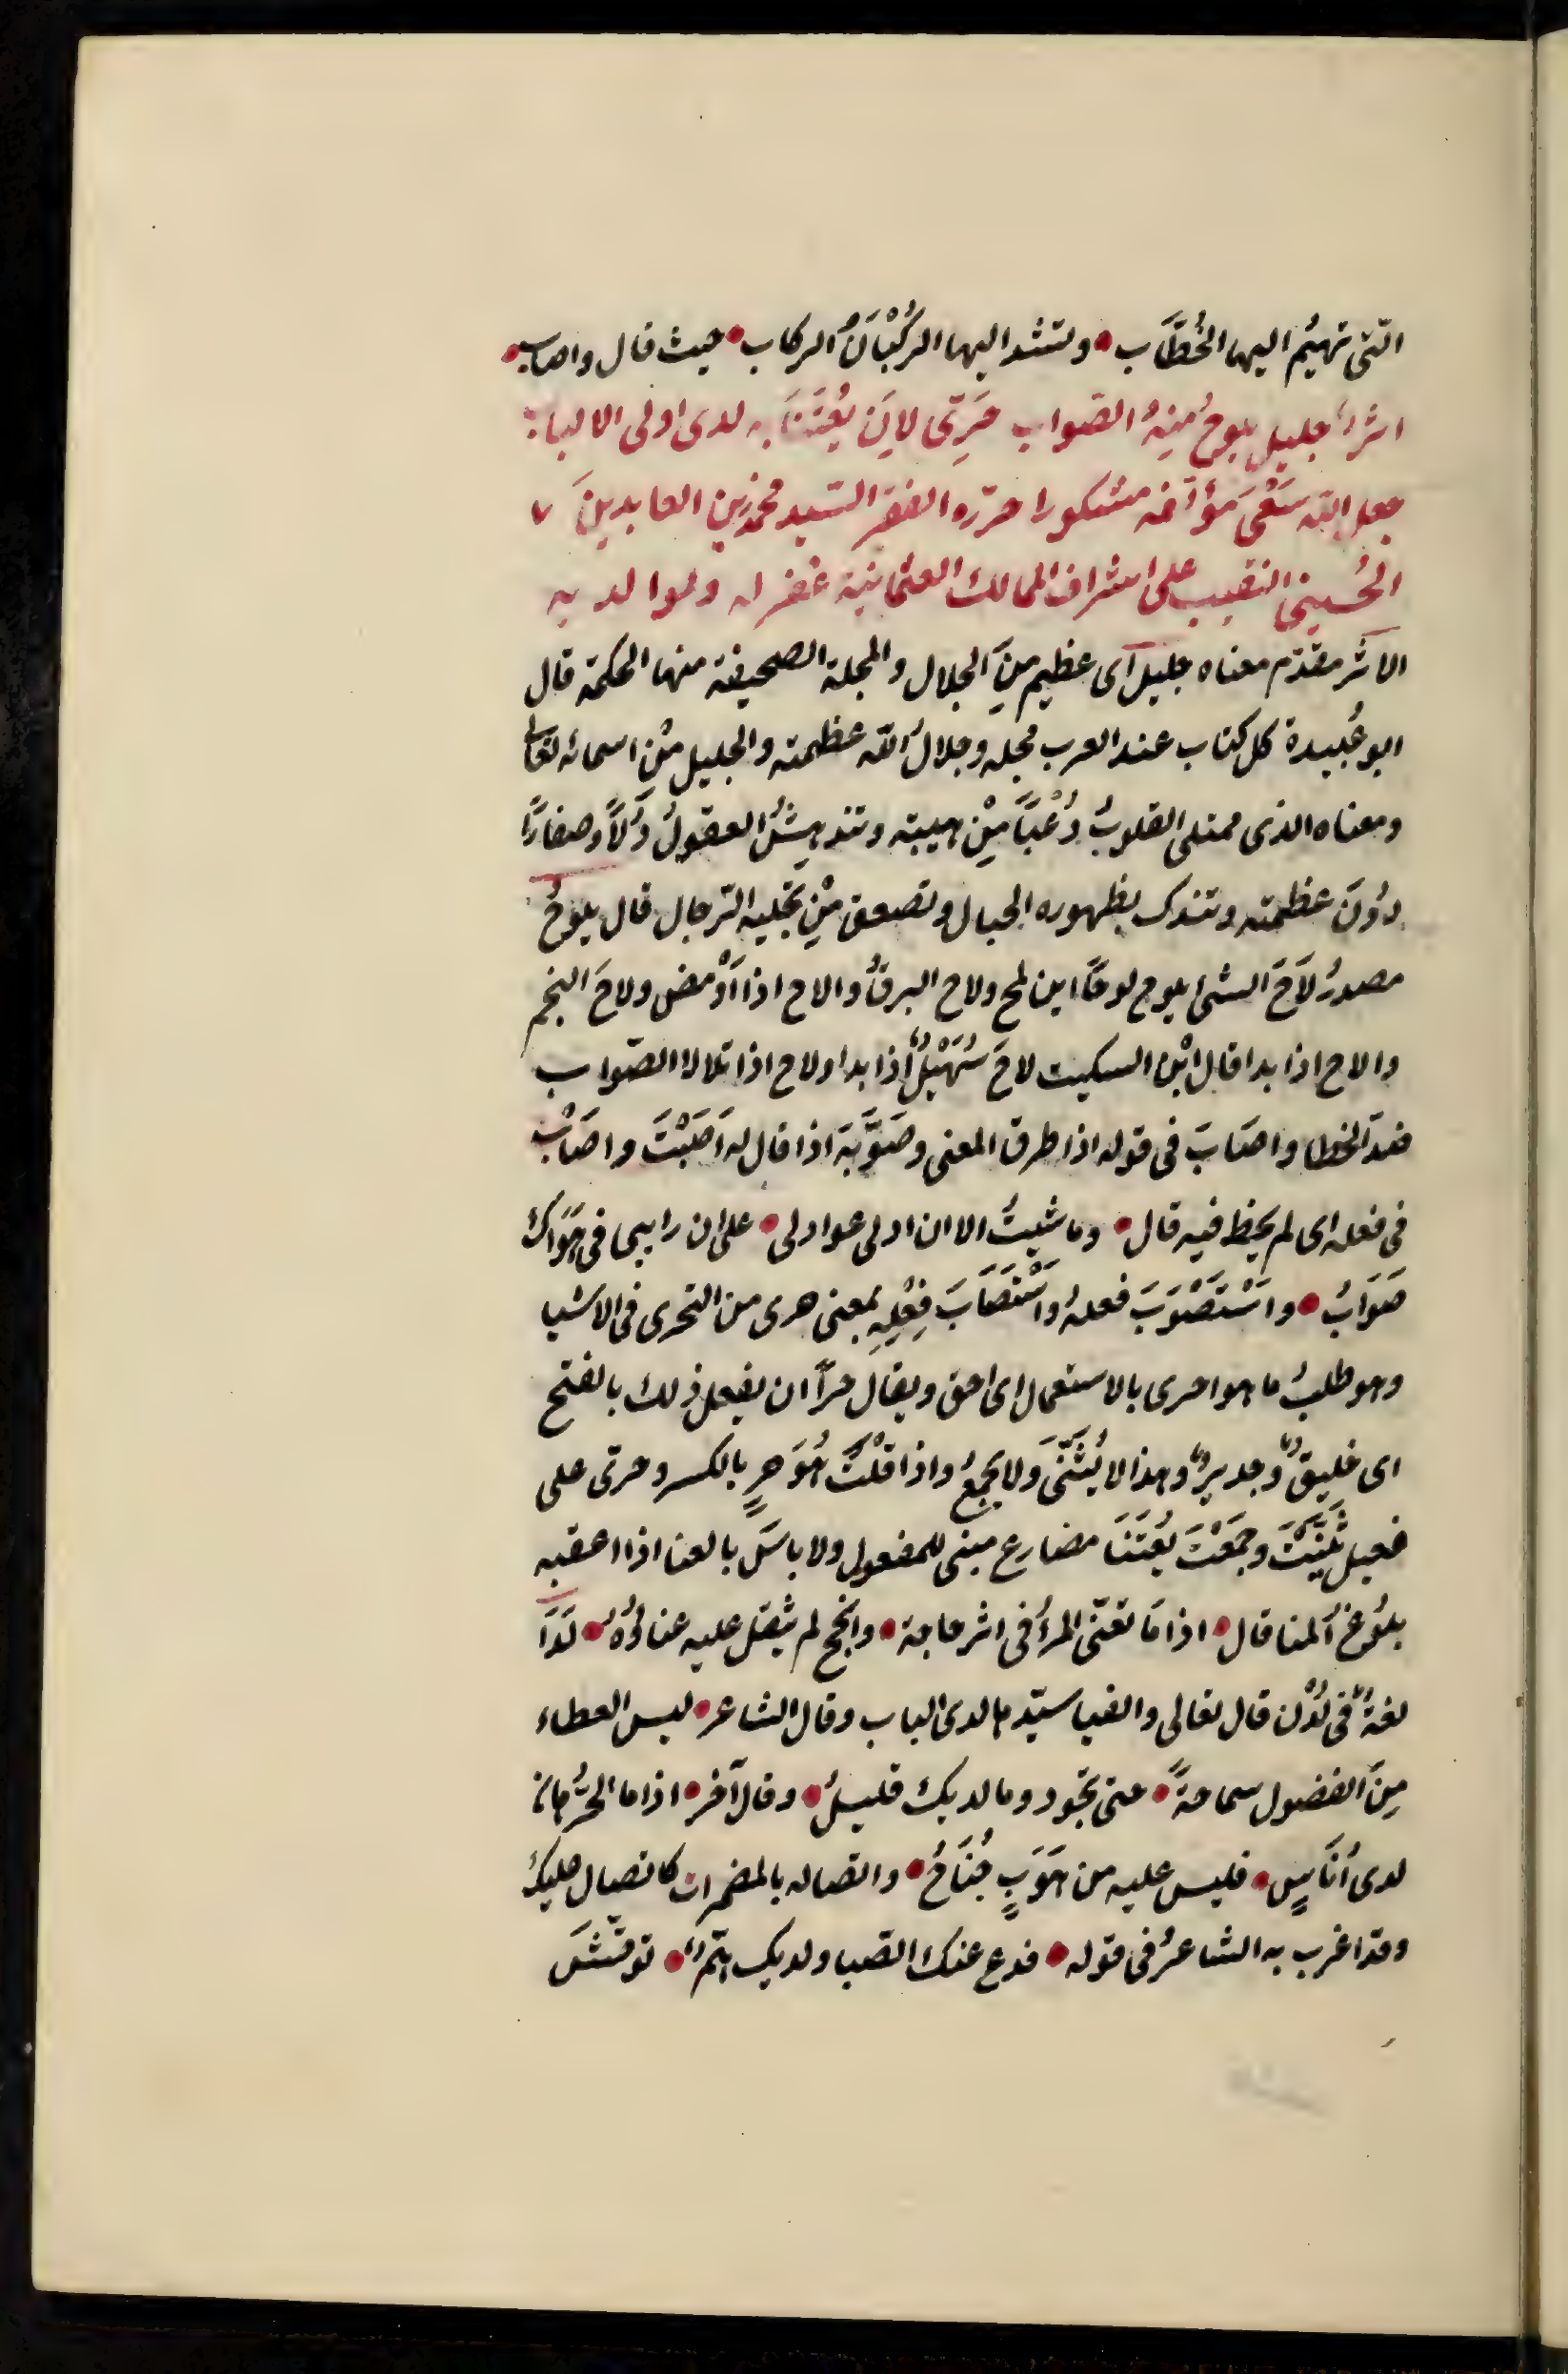 التّى تهيُم اليها الخُطّاَب • ولتشد اليها الرُكْبَانُ الركاب • حيث قال واصاب •
اثرٌ جليل يلوحُ مِنِهُ الصّواب حَرِىّ لاِنَ يُعْتَنَا به لدى اولى الالباب
جعل الله سَعْىَ مَؤلّفه مشكورا حرّره الفقر السّيد محمّد زين العابدينَ
الحُسينى النقيب على اشراف الممالك العثمانية غفر له ولوالديه
الاثر مقدّم معناه جليل اى عظيم مِنَ الجلال والمجلة الصحيفة منها الحكمة قال
ابو عُبيدة كل كتاب عند العرب مجله وجلالُ الله عظمته والجليل مْنِ اسمائه تعالى
ومعناه الذى ممتلى القلوبُ رُعْبًا مِنْ هيبته وتندهِشُ العقولُ ذُلاًّ وصغارًا
دوُنَ عظمته وتندك بظهوره الجبال وتصعق مْنِ تجليه الرّجال قال يلوحُ
مصدرُ لاَحَ الشئ يلوح لوحًا اين لمح ولاح البرقُ والاح اذا اَوْمض ولاحَ النجم
والاح اذا بدا قال ابْن السكيت لاحَ سُهَيْلٌ اذا بدا ولاح اذا تلالا الصّواب
ضدّ الخطا واصَابَ فى قوله اذا طرق المعنى وصَوَّبَهَ اذا قال له اَصَبْتَ واصَابْ
فى فعله اى لم يخط فيه قال • وما شيبتُ الا ان ادلى عواولى • على ان راييى فى هَوَاك
صَوَابُ • واسْتَصْوَبَ فعلهُ واسْتصَابَ فِعْلِهِ بمعنى حرى من التحرى فى الاشيا
وهو طلبُ ما هو احرى بالاستعمال اى احق ويقال حراً ان يفعل ذلك بالفتح
اى خليقٌ وجديرٌ وهذا لا يُثنّىَ ولا يجمعُ واذا قلْت هُوَ حرٍ بالكسر وحرىّ على
فعيل ثنّيَتَ وجمَعْتَ يُعتَنَا مضارع مبنى للمفعول ولا باسَل بالعنا اذا اعقبه
بلوُغُ المنا قال • اذا مَا تعنّى المرؤُ فى اثر حاجة • وانجح لم يثقل عليه عناؤُه • لَدَا
لغةٌ فى لَدُنْ قال تعالى والفيا سيّدها لدى الباب وقال الشاعر • ليس العطاء
مِنَ الفضول سماحةً • حتى تجود وما لديك قليلُ • وقال آخر • اذا ما الحُرُّ هان
لدى اُناَسٍ • فليس عليه من هَوَبٍ جُنَاحُ • واتصاله بالمضمرات كاتصال عليك
وقد اغرب به الشاعرُ فى قوله • فدع عنك الصّبا ولديك همٌّ • توقّشَ